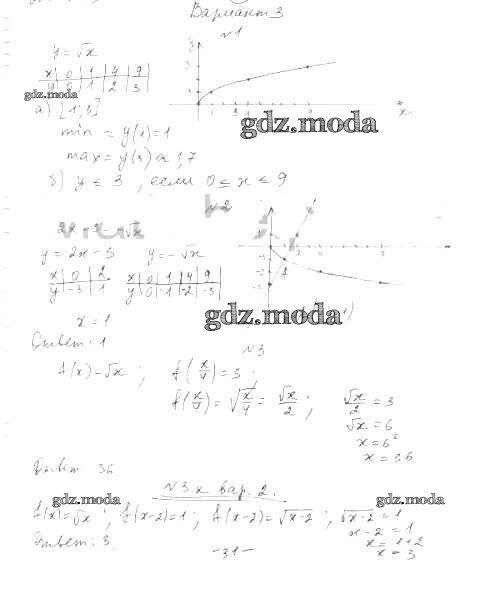 Вариант 3
№1
y = √x
x | 0 | 1 | 4 | 9
y | 0 | 1 | 2 | 3
gdz.moda
а) [1; 3]
gdz.moda
min = y(1) = 1
max = y(3) ≈ 1,7
б) y ≤ 3, если 0 ≤ x ≤ 9
№2
y = 2x - 3
y = -√x
x | 0 | 2
y | -3 | 1
x | 0 | 1 | 4 | 9
y | 0 | -1 | -2 | -3
x = 1
gdz.moda
Ответ: 1
№3
f(x) = √x; f(x/4) = 3;
f(x/4) = √(x/4) = √x/2; √x/2 = 3
√x = 6
x = 6²
x = 36
Ответ: 36
№3 к вар. 2.
gdz.moda
gdz.moda
f(x) = √x; f(x-2) = 1; f(x-2) = √(x-2); √(x-2) = 1
x - 2 = 1
x = 1+2
x = 3
Ответ: 3.
-31-